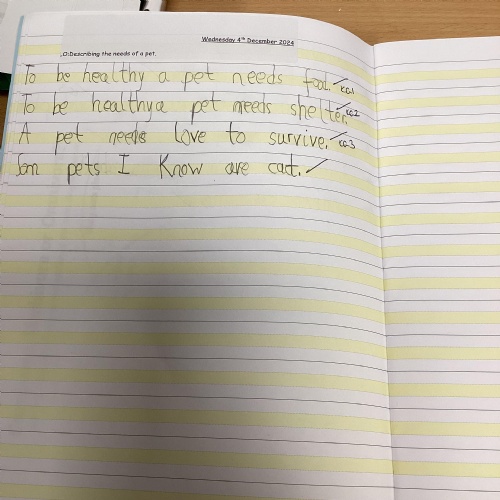 Wednesday 4th December 2024
.O:Describing the needs of a pet.
To be healthy a pet needs food. KC1
To be healthy a pet needs shelter. KC2
A pet needs love to survive. KC3
Som pets I Know are cat.